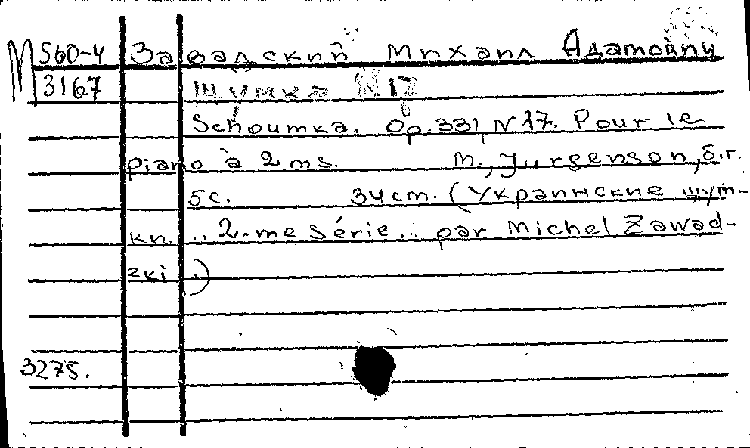 М 560-4 Завадский Михаил Адамович
3167 Шумка № 17
Schoumka. Op. 331, N 17. Pour le
piano à 2 ms. М., Jurgenson, б.г.
5 с. 34 cm. (Украинские шум-
ки. .. 2-me série .. par Michel Zawad-
zki .)
3275.